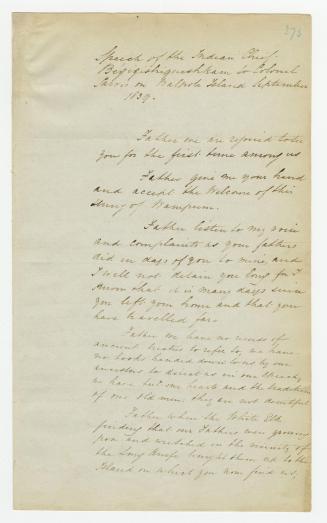 273
Speech of the Indian Chief
Begigishigueshkam to Colonel
Jarvis on Walpole Island September
1839.
Father we are rejoiced to see
you for the first time among us
Father give me your hand
and accept the welcome of this
string of Wampum.
Father listen to my voice
and complaints as your fathers
did in days of you to mine, and
I will not detain you long for I
know that it is many days since
you left your home and that you
have travelled far
Father we have no words of
ancient writers to refer to, we have
no books handed down to us by our
ancestors to assist us in our speeches
we have but our hearts and the traditions
of our old men they are not doubtful
Father when the White Elk
finding that our Fathers were growing
poor and wretched in the vicinity of
the Long Knife brought them up to the
Island on which you now find us.